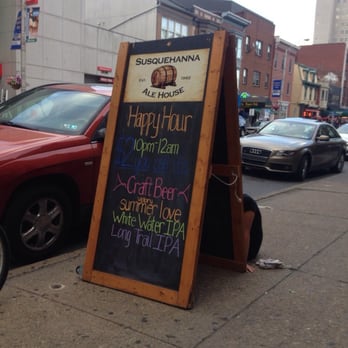 SUSQUEHANNA
EST.
ALE HOUSE
Happy Hour
10pm-12am
Craft Beer
summer love
White Water IPA
Long Trail IPA